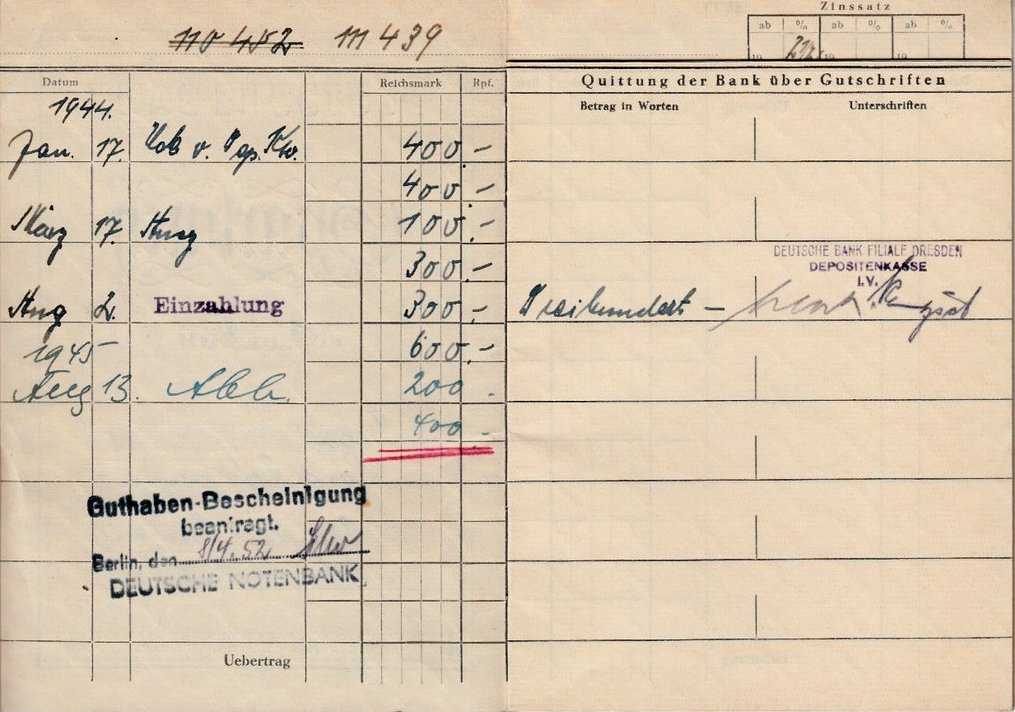 110 452 111 439
Datum Reichsmark Rpf.
1944.
Jan. 17. v. 400.-
400.-
März 17. 100.-
300.-
Aug 2. Einzahlung 300.-
1945 600.-
Aug 13. 200 -
400 -
Guthaben-Bescheinigung
beantragt.
Berlin, den 8/4.52
DEUTSCHE NOTENBANK
Uebertrag
Zinssatz
ab % ab % ab %
19 2 1/2 19 19
Quittung der Bank über Gutschriften
Betrag in Worten Unterschriften
DEUTSCHE BANK FILIALE DRESDEN
DEPOSITENKASSE
I.V.
Dreihundert -